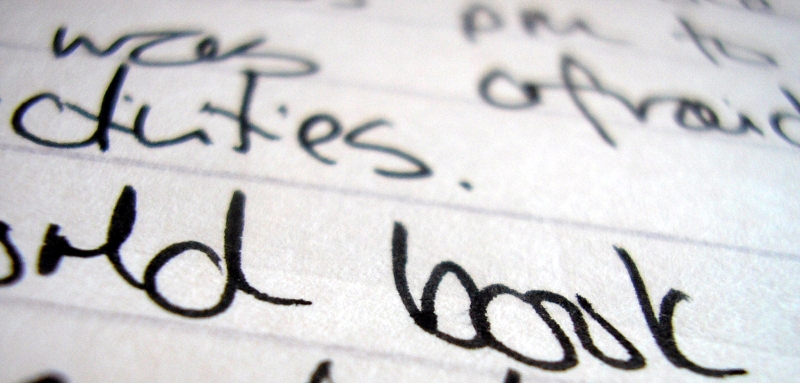 was pm to
ctivities. afraid
orld book